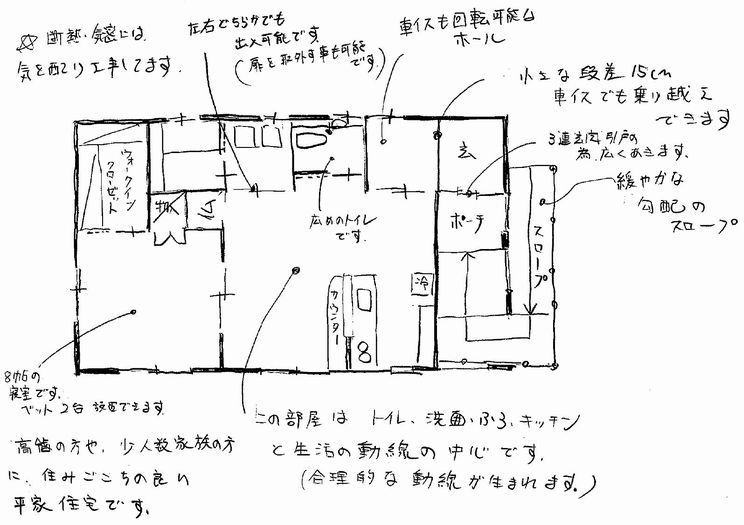 ☆ 断熱・気密には
気を配り工事してます。
左右どちらかでも
出入可能です。
(扉を取外す事も可能
です。)
車イスも回転可能な
ホール
小さな段差15cm
車イスでも乗り越え
できます
3連玄関引戸の
為、広くあきます。
緩やかな
勾配の
スロープ
ウォークイン
クローゼット
物入
仏
玄
ポーチ
スロープ
広めのトイレ
です。
カウンター
冷
8帖の
寝室です。
ベット2台 設置できます
この部屋は トイレ、洗面・ふろ、キッチン
と生活の動線の中心です。
(合理的な動線が生まれます。)
高齢の方や、少人数家族の方
に、住みごこちの良い
平家住宅です。